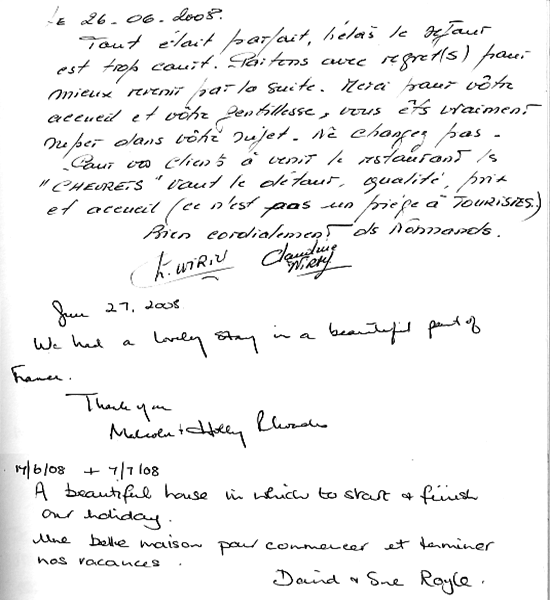 Le 26-06-2008.
Tout était parfait, hélas le séjour
est trop court. Partons avec regret(s) pour
mieux revenir par la suite. Merci pour vôtre
accueil et vôtre gentillesse, vous êts vraiment
super dans vôtre sujet. Ne changez pas -
Pour vos clients à venir le restaurant le
"CHEVRETS" vaut le détour, qualité, prix
et accueil (ce n'est pas un piège à TOURISTES).
Bien cordialement ds Normands.
Claudine
June 27, 2008
We had a lovely stay in a beautiful part of
France.
Thank you
Malcolm + Holly Rhodes
17/6/08 + 7/7/08
A beautiful house in which to start & finish
our holiday.
Une belle maison pour commencer et terminer
nos vacances.
David & Sue Royle.